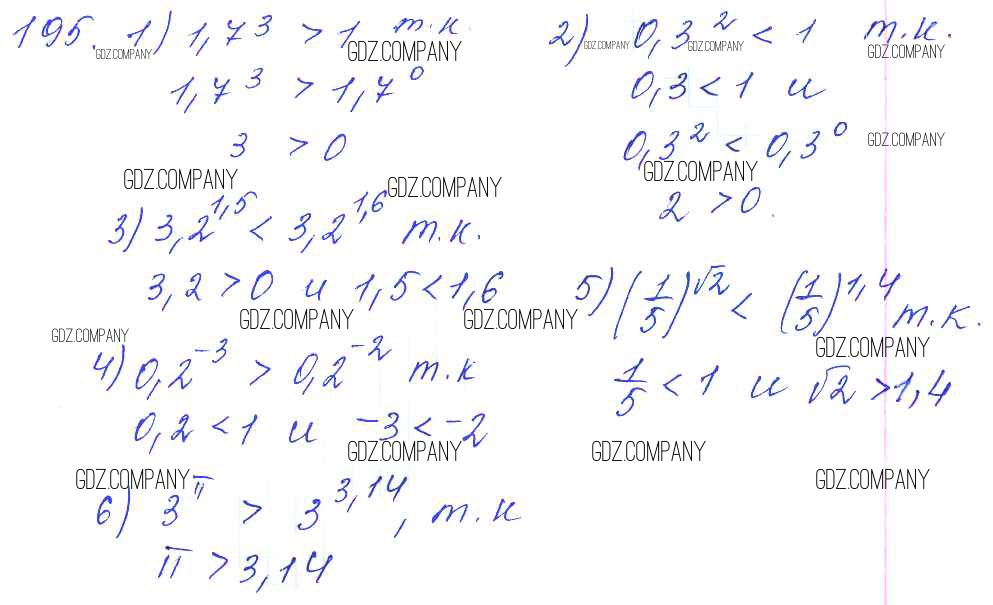 195. 1) 1,7³ > 1 т.к.
GDZ.COMPANY GDZ.COMPANY
1,7³ > 1,7⁰
3 > 0
GDZ.COMPANY GDZ.COMPANY
2) 0,3² < 1 т.к.
GDZ.COMPANY GDZ.COMPANY GDZ.COMPANY
0,3 < 1 и
0,3² < 0,3⁰
GDZ.COMPANY
GDZ.COMPANY
2 > 0.
3) 3,2^1,5 < 3,2^1,6 т.к.
3,2 > 0 и 1,5 < 1,6
GDZ.COMPANY GDZ.COMPANY
GDZ.COMPANY
4) 0,2⁻³ > 0,2⁻² т.к
0,2 < 1 и -3 < -2
GDZ.COMPANY
5) (1/5)^√2 < (1/5)^1,4 т.к.
GDZ.COMPANY
1/5 < 1 и √2 > 1,4
GDZ.COMPANY
GDZ.COMPANY GDZ.COMPANY
6) 3^π > 3^3,14, т.к
π > 3,14